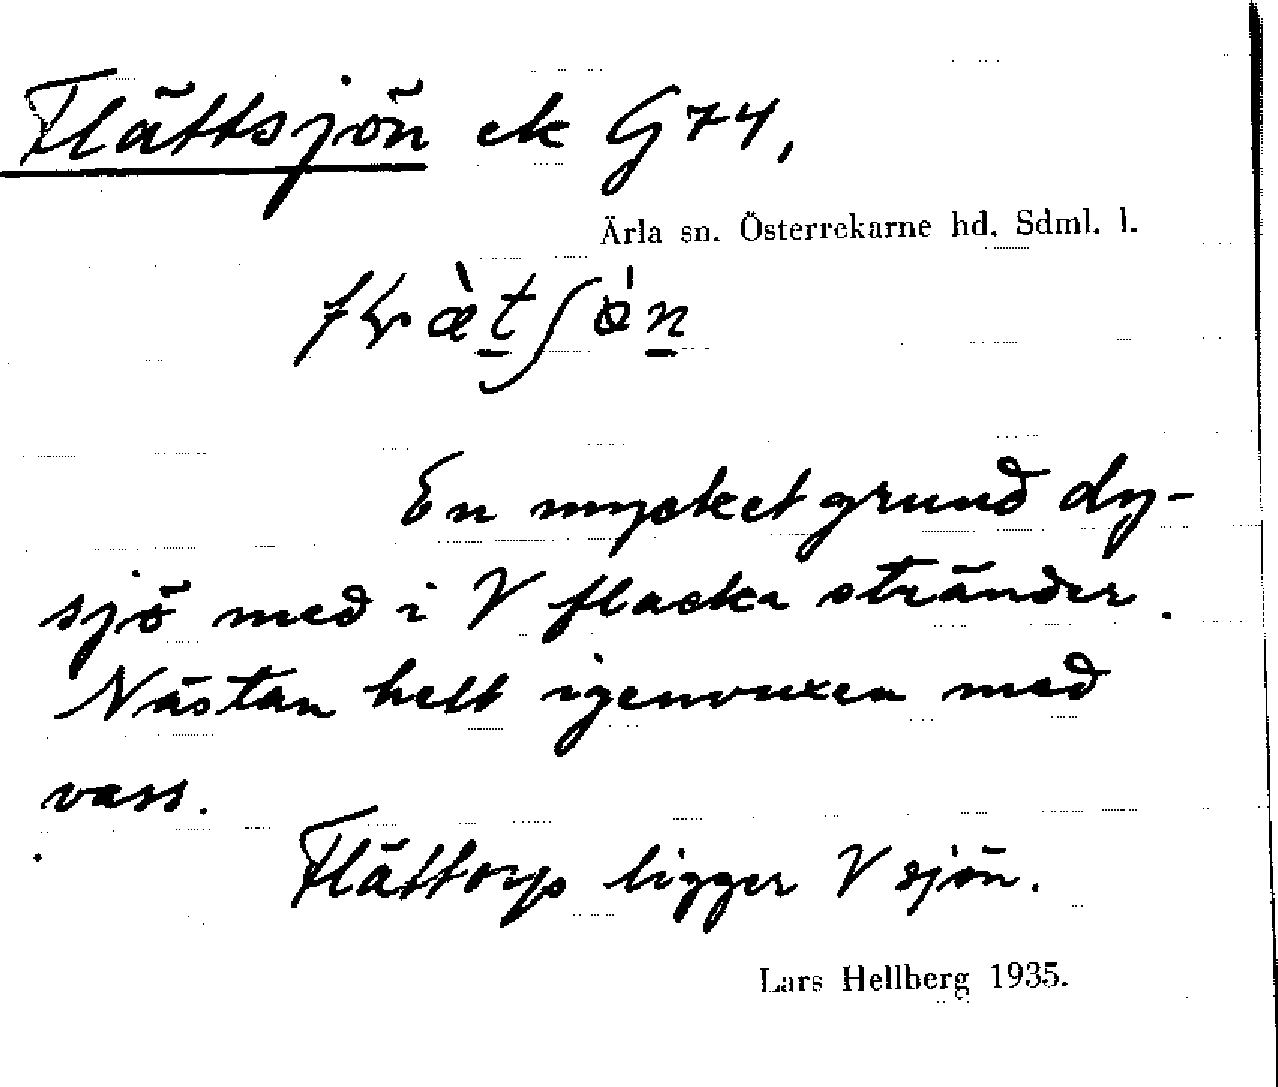 Flättsjön ek G74,
Ärla sn. Österrekarne hd. Sdml. l.
En mycket grund dy-
sjö med i V flacka stränder.
Nästan helt igenvuxen med
vass.
Flättorp ligger V sjön.
Lars Hellberg 1935.